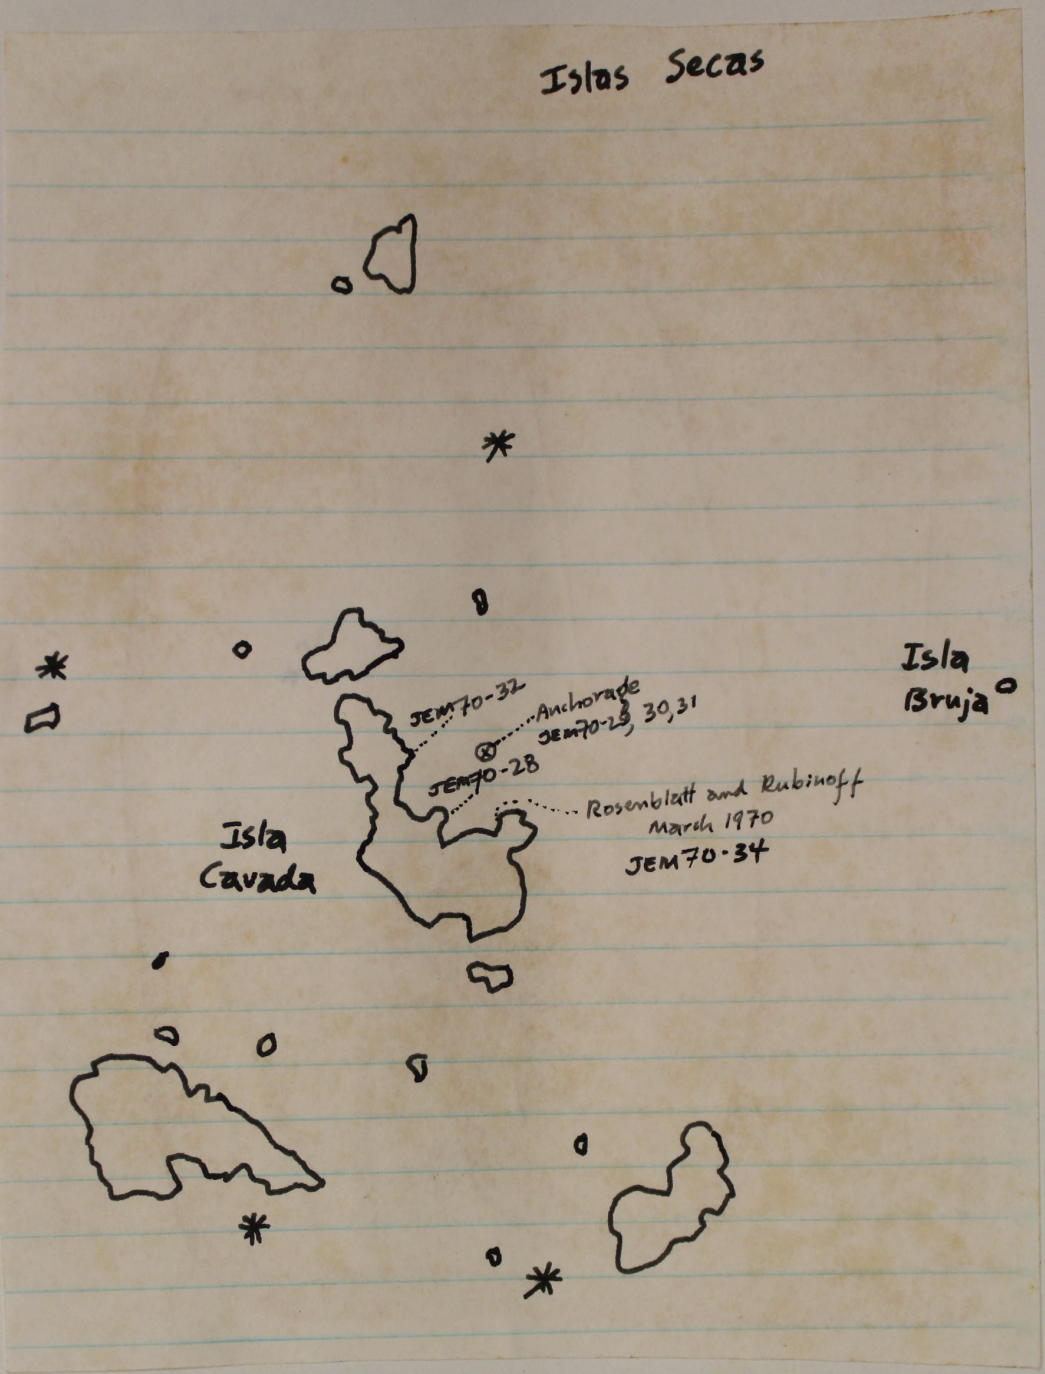 Islas Secas
Isla
Bruja
JEM70-32
Anchorage
JEM70-29, 30, 31
JEM70-28
Rosenblatt and Rubinoff
March 1970
JEM70-34
Isla
Cavada